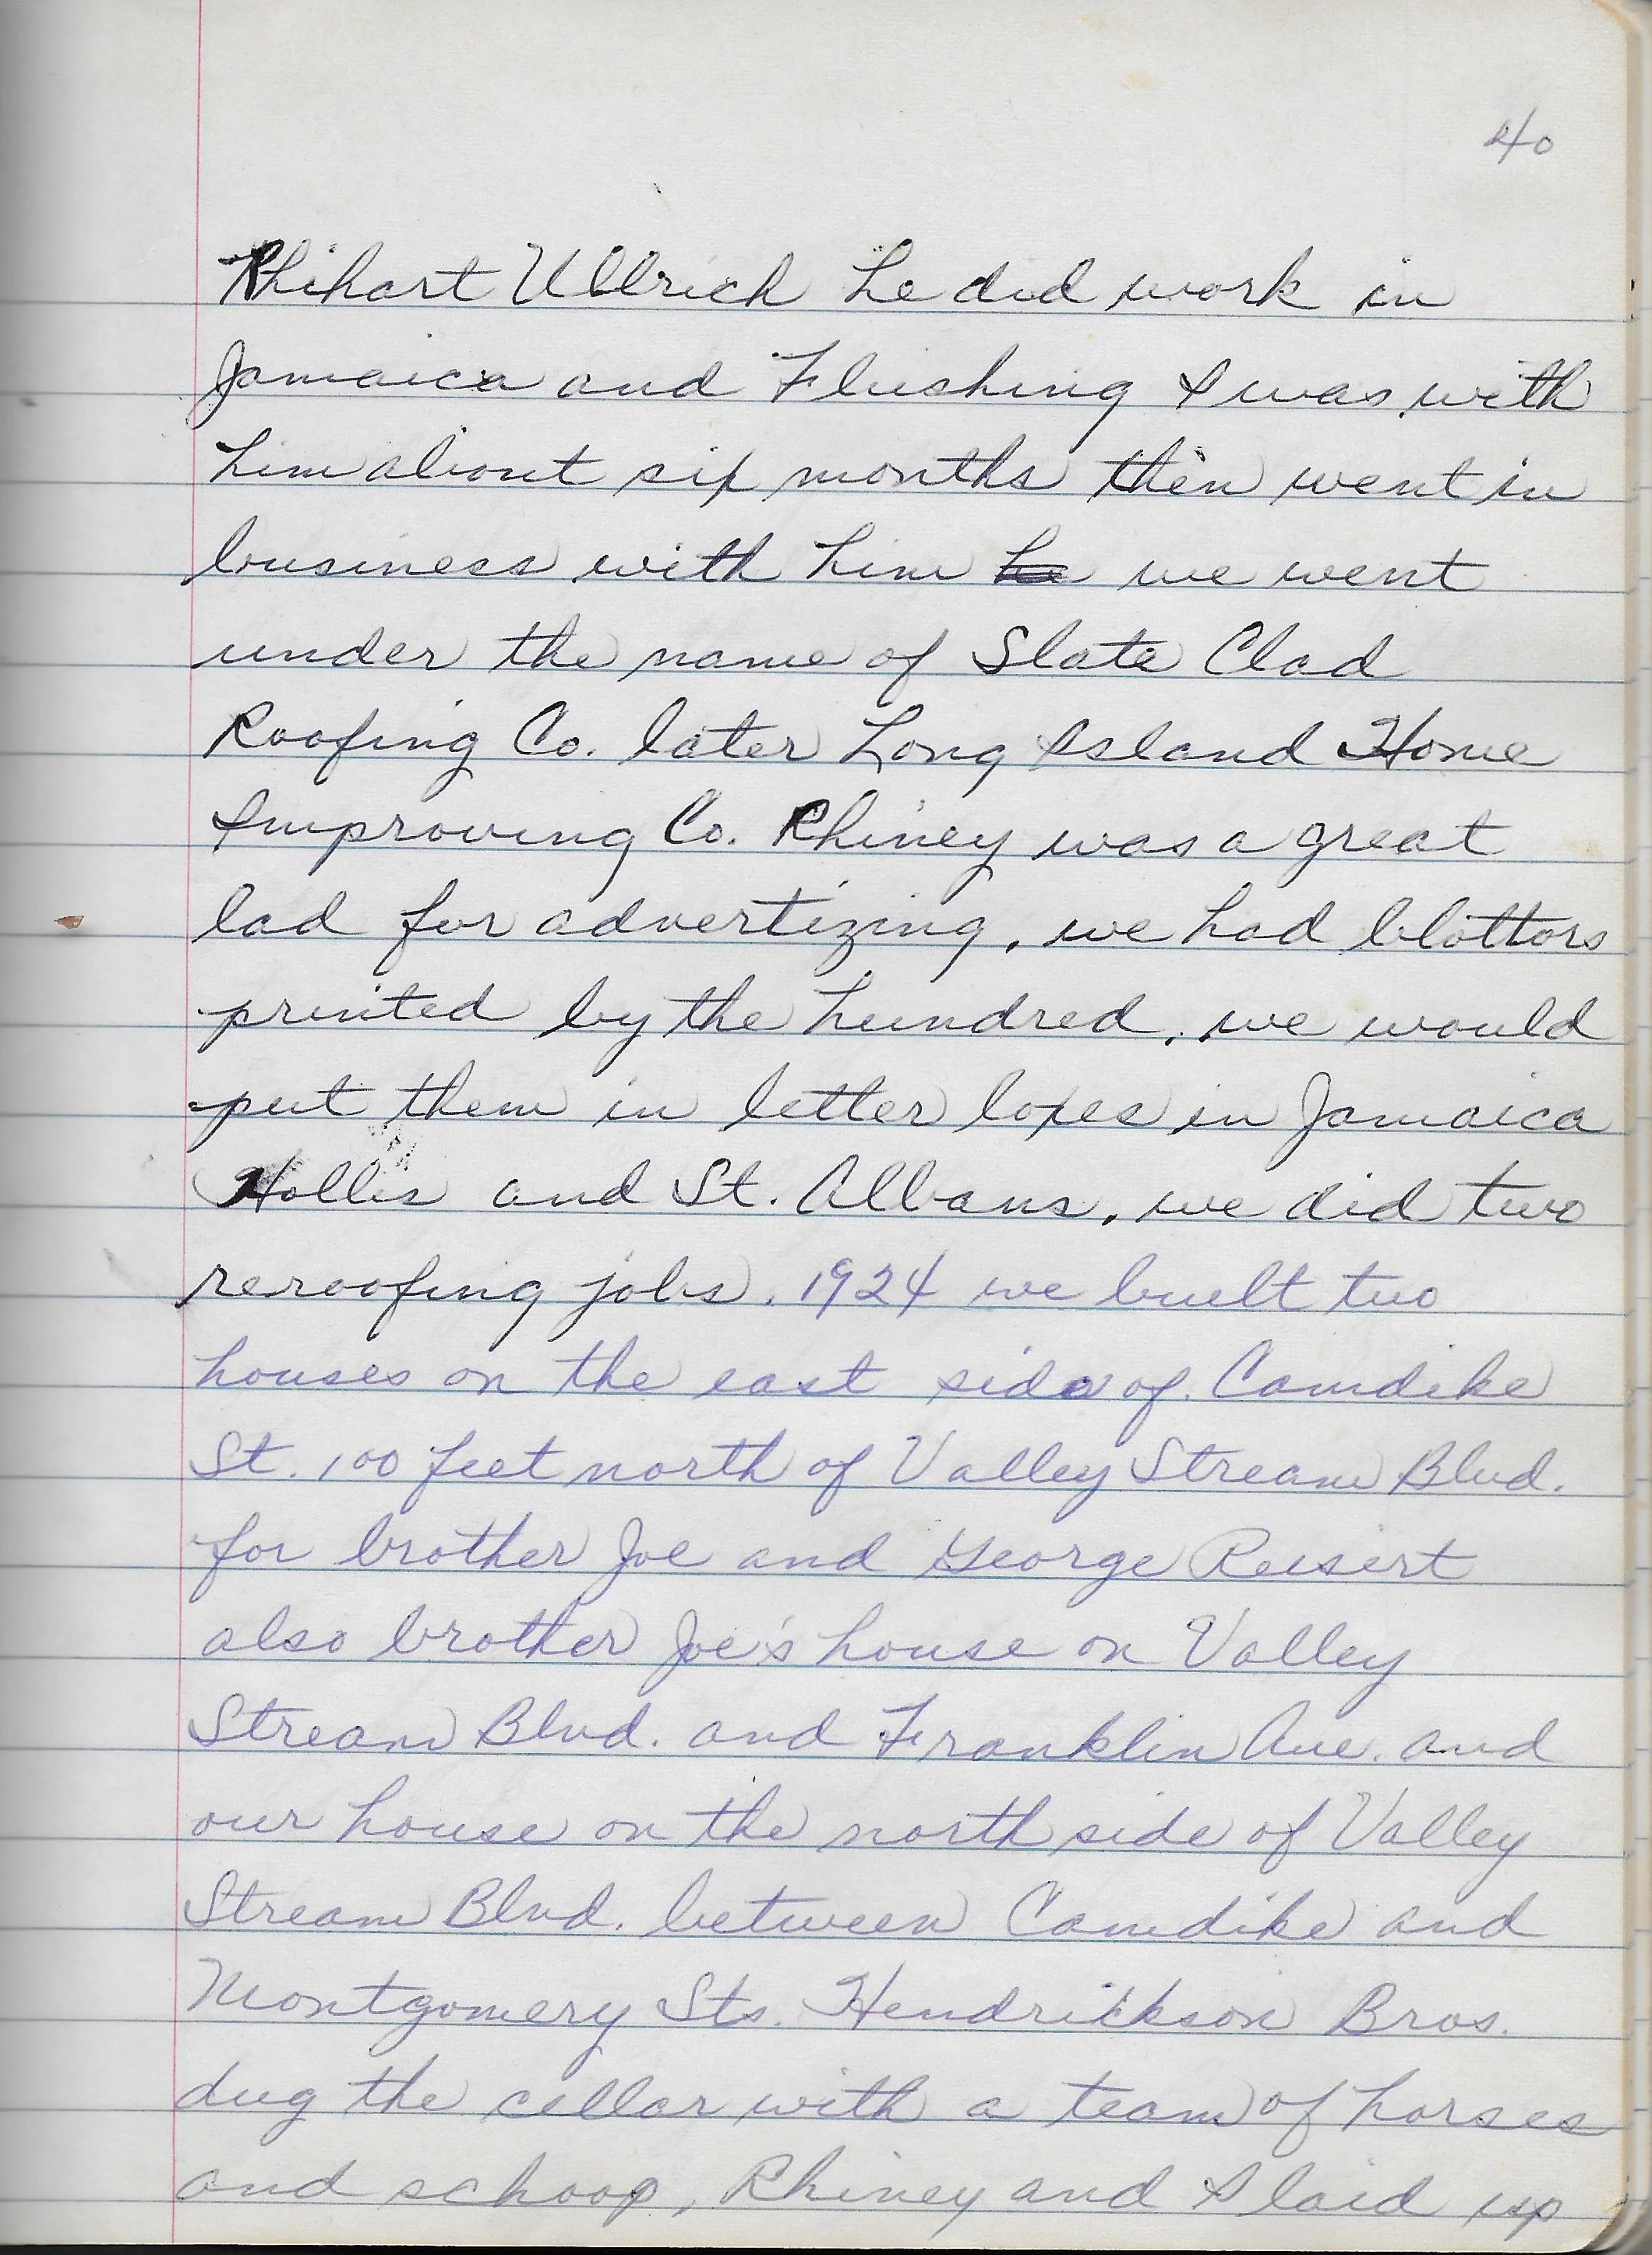 40
Rhihart Ullrich he did work in
Jamaica and Flushing I was with
him about six months then went in
business with him he we went
under the name of Slate Clad
Roofing Co. later Long Island Home
Improving Co. Rhiney was a great
lad for advertizing, we had blottors
printed by the hundred, we would
put them in letter boxes in Jamaica
Hollis and St. Albans, we did two
reroofing jobs. 1924 we built two
houses on the east side of Camdike
St. 100 feet north of Valley Stream Blvd.
for brother Joe and George Reisert
also brother Joe's house on Valley
Stream Blvd. and Franklin Ave. and
our house on the north side of Valley
Stream Blvd. between Camdike and
Montgomery Sts. Hendrickson Bros.
dug the cellar with a team of horses
and schoop, Rhiney and I laid up